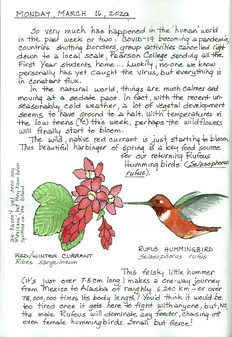 MONDAY, MARCH 16, 2020
So very much has happened in the human world
in the past week or two; COVID-19 becoming a pandemic,
countries shutting borders, group activities cancelled right
down to a local scale, Pearson College sending all the
First Year students home... Luckily, no-one we know
personally has yet caught the virus, but everything is
in constant flux.
In the natural world, things are much calmer and
moving at a sedate pace. In fact, with the recent un-
seasonably cold weather, a lot of vegetal development
seems to have ground to a halt. With temperatures in
the low teens (°C) this week, perhaps the wildflowers
will finally start to bloom.
The wild, native red currant is just starting to bloom.
This beautiful harbinger of spring is a key food source
for our returning Rufous
Hummingbirds (Selasphorus
rufus).
We haven't yet seen any
"Rufouses", but they have been
spotted on the Island.
RED/WINTER CURRANT
Ribes sanguineum
RUFOUS HUMMINGBIRD
Selasphorus rufus
This feisty little hummer
(it's just over 7.5cm long) makes a one-way journey
from Mexico to Alaska of roughly 6,240 km - or over
78,000,000 times its body length! You'd think it would be
too tired once it gets here to fight with anyone, but, NO,
the male Rufous will dominate any feeder, chasing off
even female hummingbirds. Small but fierce!